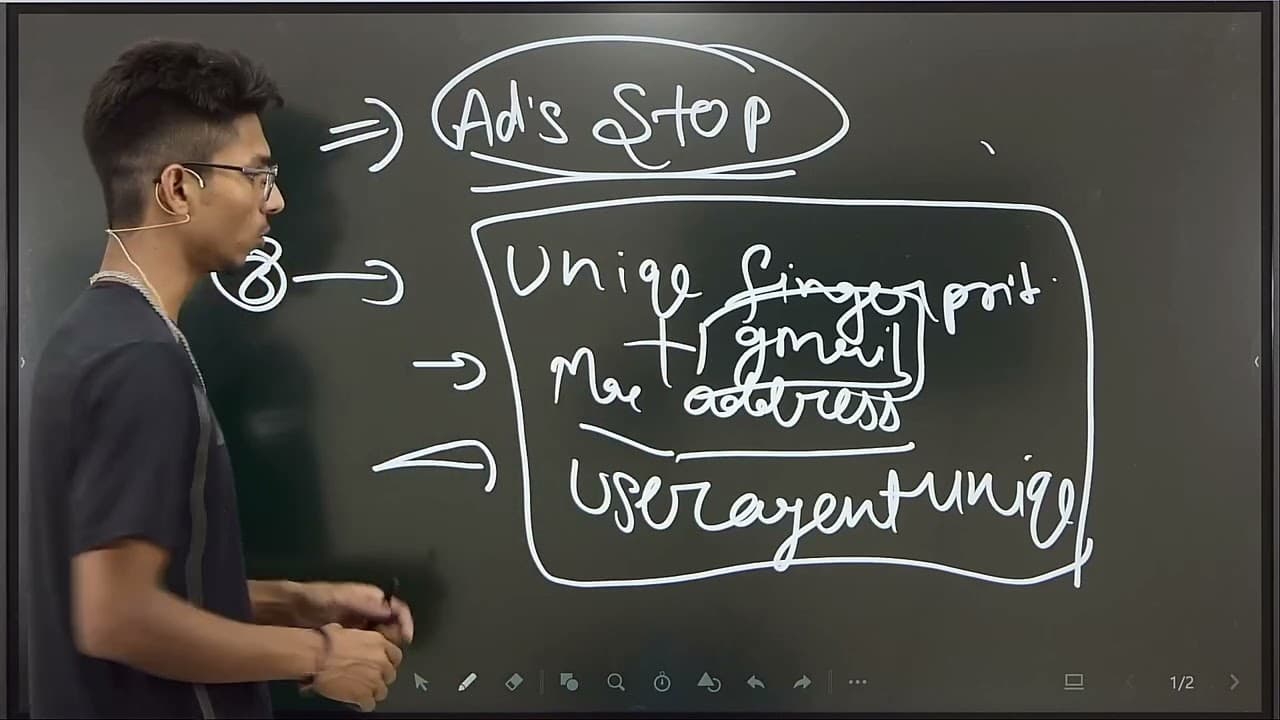 Ad's Stop
Uniqe fingerprit.
+ gmail
Mac address
Useragent uniqe
1/2